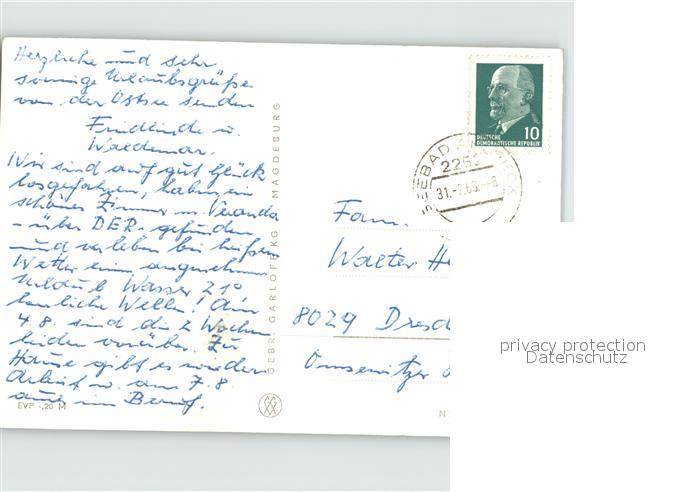 Herzliche und sehr
sonnige Urlaubsgrüße
von der Ostsee senden
Friedlinde u.
Waldemar.
Wir sind auf gut Glück
losgefahren, haben ein
schönes Zimmer m. Veranda
- über DER. gefunden
und verleben bei heißem
Wetter einen angenehmen
Urlaub Wasser 21°
herrliche Wellen! Am
4.8. sind die 2 Wochen
leider vorüber. Zu
Hause gibt es wieder
Arbeit u. am 7.8
im Beruf.
EVP -,20 M
GEBR. GARLOFF KG MAGDEBURG
DEUTSCHE
DEMOKRATISCHE REPUBLIK
10
SEEBAD
225
31.-7.69.-8
Fam.
Walter
8029 Dresd
Omsewitzer
N
privacy protection
Datenschutz